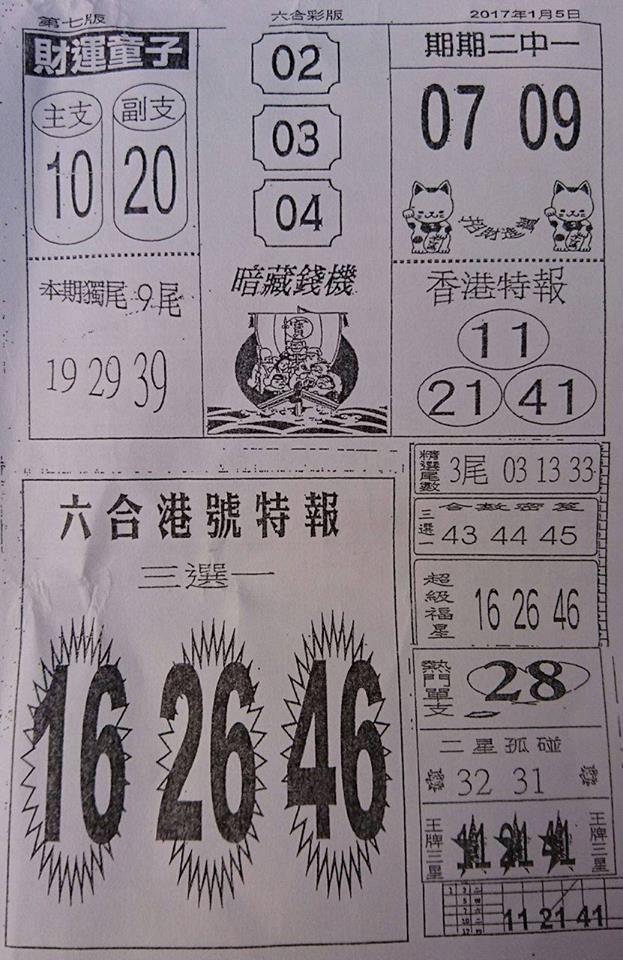 第七版
六合彩版
2017年1月5日
財運童子
主支 副支
10 20
本期獨尾 9尾
19 29 39
02
03
04
暗藏錢機
寶
期期二中一
07 09
香港特報
11
21 41
精選尾數
3尾 03 13 33
三選一
43 44 45
超級福星
16 26 46
熱門單支
28
二星孤碰
32 31
王牌三星
11 21 41
王牌三星
11 21 41
六合港號特報
三選一
16 26 46